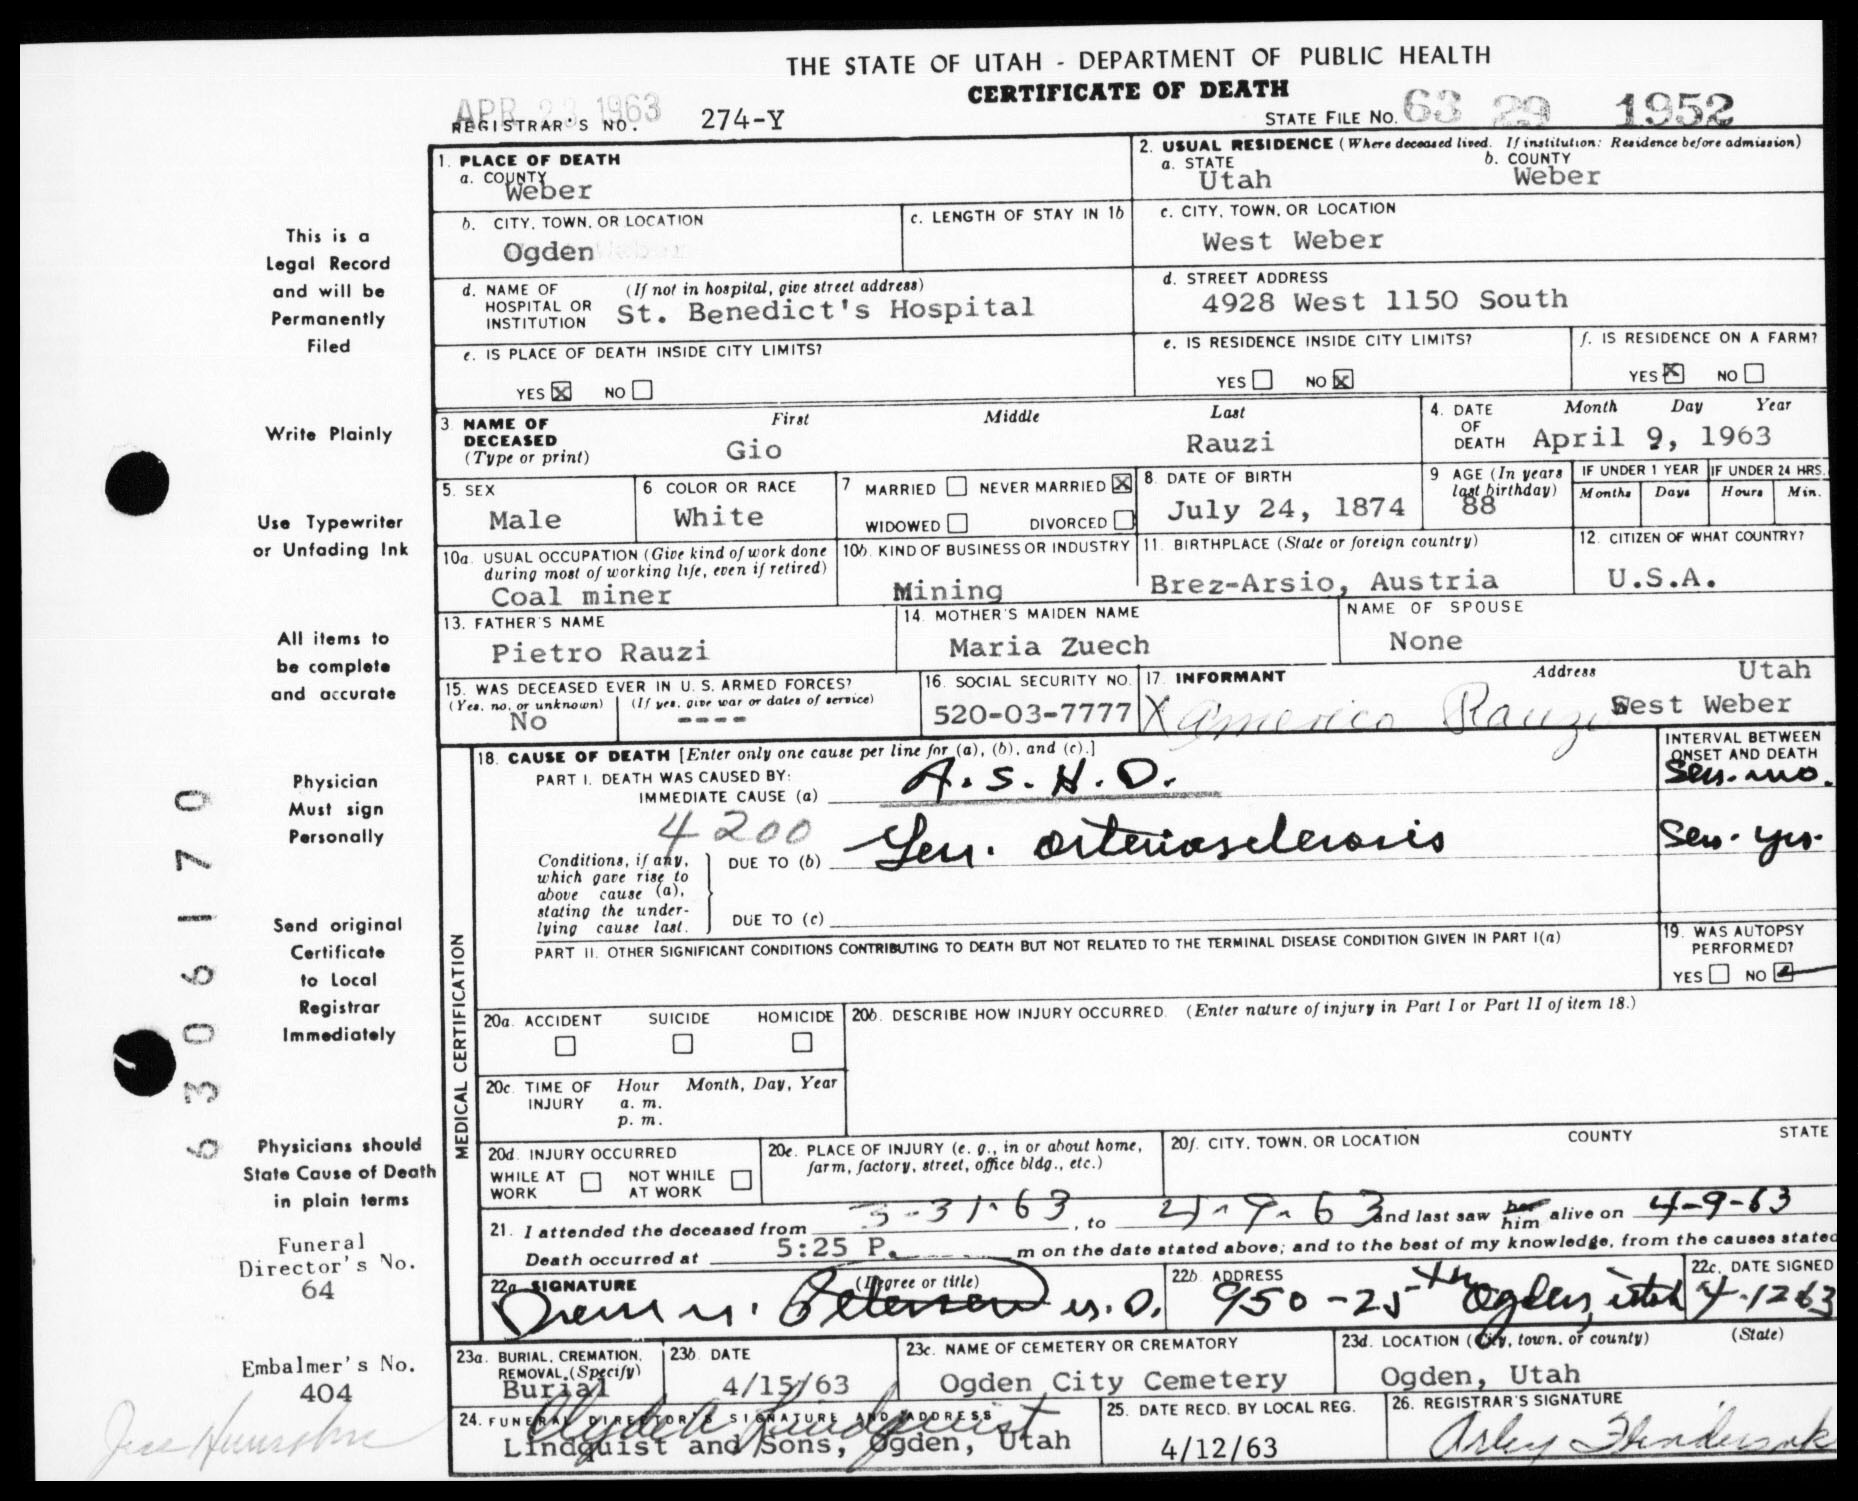 THE STATE OF UTAH - DEPARTMENT OF PUBLIC HEALTH
CERTIFICATE OF DEATH
APR 23 1963
REGISTRAR'S NO. 274-Y
STATE FILE NO. 63 29 1952
This is a
Legal Record
and will be
Permanently
Filed
Write Plainly
Use Typewriter
or Unfading Ink
All items to
be complete
and accurate
Physician
Must sign
Personally
Send original
Certificate
to Local
Registrar
Immediately
Physicians should
State Cause of Death
in plain terms
Funeral
Director's No.
64
Embalmer's No.
404
6306170
1. PLACE OF DEATH
a. COUNTY
Weber
2. USUAL RESIDENCE (Where deceased lived. If institution: Residence before admission)
a. STATE
Utah
b. COUNTY
Weber
b. CITY, TOWN, OR LOCATION
Ogden
c. LENGTH OF STAY IN 1b
c. CITY, TOWN, OR LOCATION
West Weber
d. NAME OF HOSPITAL OR INSTITUTION (If not in hospital, give street address)
St. Benedict's Hospital
d. STREET ADDRESS
4928 West 1150 South
e. IS PLACE OF DEATH INSIDE CITY LIMITS?
YES X NO
e. IS RESIDENCE INSIDE CITY LIMITS?
YES NO X
f. IS RESIDENCE ON A FARM?
YES X NO
3. NAME OF DECEASED (Type or print)
First Middle Last
Gio Rauzi
4. DATE OF DEATH Month Day Year
April 9, 1963
5. SEX
Male
6 COLOR OR RACE
White
7 MARRIED NEVER MARRIED X
WIDOWED DIVORCED
8. DATE OF BIRTH
July 24, 1874
9 AGE (In years last birthday)
88
IF UNDER 1 YEAR
Months Days
IF UNDER 24 HRS.
Hours Min.
10a. USUAL OCCUPATION (Give kind of work done during most of working life, even if retired)
Coal miner
10b. KIND OF BUSINESS OR INDUSTRY
Mining
11. BIRTHPLACE (State or foreign country)
Brez-Arsio, Austria
12. CITIZEN OF WHAT COUNTRY?
U.S.A.
13. FATHER'S NAME
Pietro Rauzi
14. MOTHER'S MAIDEN NAME
Maria Zuech
NAME OF SPOUSE
None
15. WAS DECEASED EVER IN U.S. ARMED FORCES?
(Yes, no, or unknown) (If yes, give war or dates of service)
No ----
16. SOCIAL SECURITY NO.
520-03-7777
17. INFORMANT Address
X Americo Rauzi
Utah
West Weber
MEDICAL CERTIFICATION
18. CAUSE OF DEATH [Enter only one cause per line for (a), (b), and (c).]
PART I. DEATH WAS CAUSED BY:
IMMEDIATE CAUSE (a) A.S.H.D.
4200
INTERVAL BETWEEN ONSET AND DEATH
Sev. mo.
Conditions, if any, which gave rise to above cause (a), stating the underlying cause last.
DUE TO (b) Gen. arteriosclerosis
Sev. yrs.
DUE TO (c)
PART II. OTHER SIGNIFICANT CONDITIONS CONTRIBUTING TO DEATH BUT NOT RELATED TO THE TERMINAL DISEASE CONDITION GIVEN IN PART I(a)
19. WAS AUTOPSY PERFORMED?
YES NO
20a. ACCIDENT SUICIDE HOMICIDE
20b. DESCRIBE HOW INJURY OCCURRED. (Enter nature of injury in Part I or Part II of item 18.)
20c. TIME OF INJURY Hour Month, Day, Year
a. m.
p. m.
20d. INJURY OCCURRED
WHILE AT WORK NOT WHILE AT WORK
20e. PLACE OF INJURY (e. g., in or about home, farm, factory, street, office bldg., etc.)
20f. CITY, TOWN, OR LOCATION COUNTY STATE
21. I attended the deceased from 3-31-63, to 4-9-63 and last saw her him alive on 4-9-63
Death occurred at 5:25 P. m on the date stated above; and to the best of my knowledge, from the causes stated
22a. SIGNATURE (Degree or title)
Peterson M.D.
22b. ADDRESS
950-25th Ogden, Utah
22c. DATE SIGNED
4-12-63
23a. BURIAL, CREMATION, REMOVAL, (Specify)
Burial
23b. DATE
4/15/63
23c. NAME OF CEMETERY OR CREMATORY
Ogden City Cemetery
23d. LOCATION (City, town, or county) (State)
Ogden, Utah
24. FUNERAL DIRECTOR'S SIGNATURE AND ADDRESS
Clyde A Lindquist
Lindquist and Sons, Ogden, Utah
25. DATE RECD. BY LOCAL REG.
4/12/63
26. REGISTRAR'S SIGNATURE